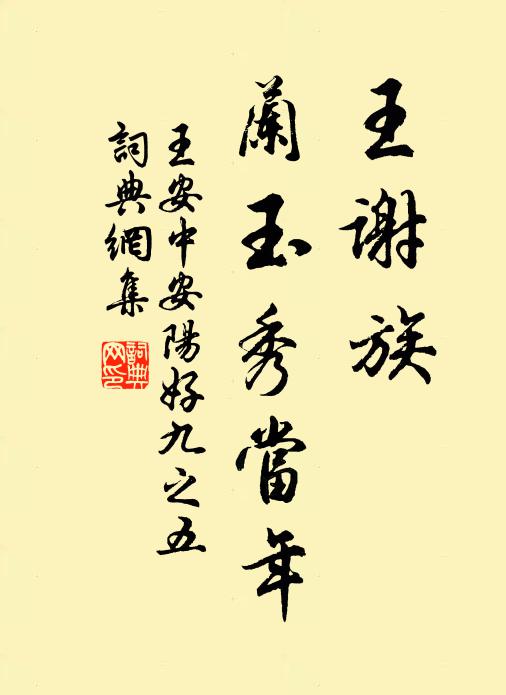 王谢族
蘭玉秀當年
王安中安陽好九之五
詞典網集
詞典
网印